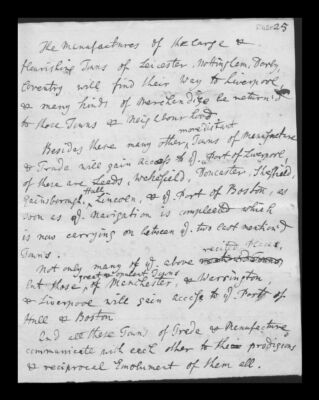 25
The Manufactures of the large &
flourishing Towns of Leicester, Nottingham, Derby,
Coventry will find their Way to Liverpool,
& many kinds of Merchandize be return'd
to those Towns & Neighbour hood
more distant
Besides these many other Towns of Manufacture
& Trade will gain access to ye Port of Liverpool,
of these are Leeds, Wakefield, Doncaster, Sheffield,
Hull
Gainsborough, Lincoln, & ye Port of Boston, as
soon as ye Navigation is compleated which
is now carrying on between ye two last mention'd
Towns.
recited places,
Not only many of ye above
great & opulent Towns
but those of Manchester, & Warrington,
& Liverpool will gain access to ye Ports of
Hull & Boston
And all these Towns of Trade & Manufacture
communicate with each other to the prodigious
& reciprocal Emolument of them all.